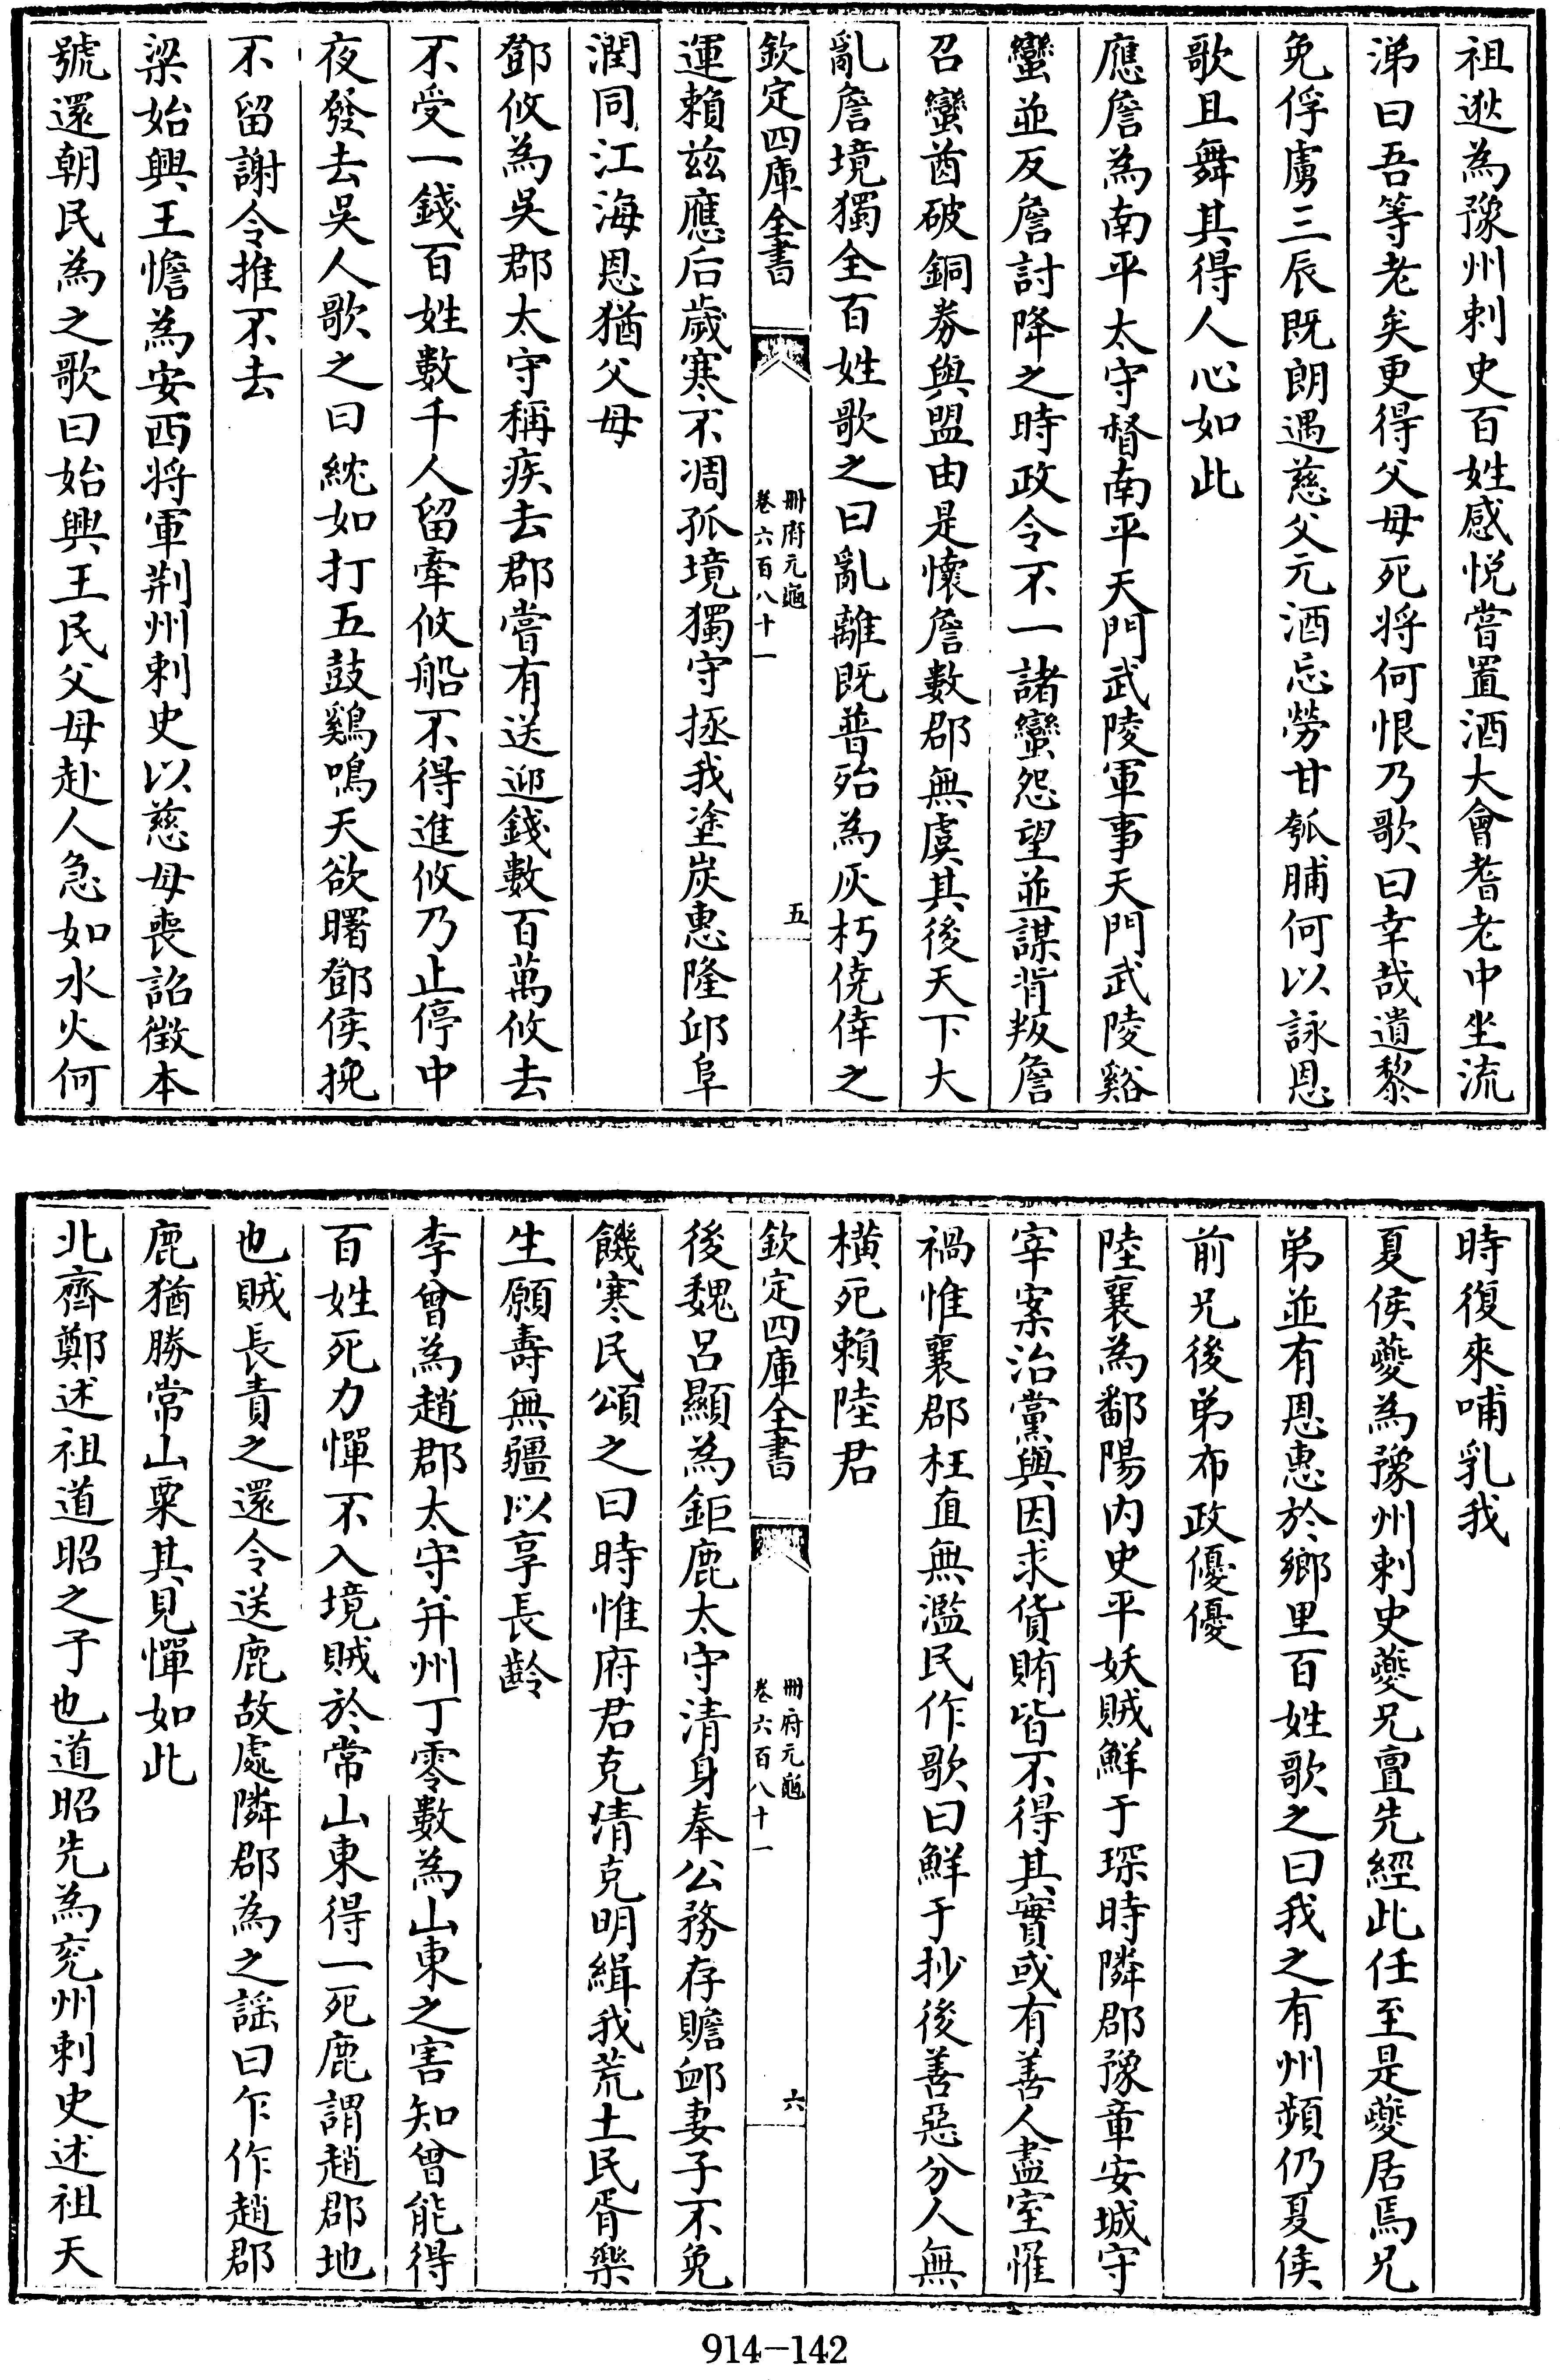 祖逖為豫州刺史百姓感悦嘗置酒大會耆老中坐流
涕曰吾等老矣更得父母死将何恨乃歌曰幸哉遺黎
免俘虜三辰既朗遇慈父元酒忘勞甘瓠脯何以詠恩
歌且舞其得人心如此
應詹為南平太守督南平天門武陵軍事天門武陵谿
蠻並反詹討降之時政令不一諸蠻怨望並謀背叛詹
召蠻酋破銅券與盟由是懷詹數郡無虞其後天下大
亂詹境獨全百姓歌之曰亂離既普殆為灰朽僥倖之
欽定四庫全書
冊府元龜
卷六百八十一
五
運賴茲應后歲寒不凋孤境獨守拯我塗炭惠隆邱阜
潤同江海恩猶父母
鄧攸為吳郡太守稱疾去郡嘗有送迎錢數百萬攸去
不受一錢百姓數千人留牽攸船不得進攸乃止停中
夜發去吳人歌之曰紞如打五鼓鷄鳴天欲曙鄧侯挽
不留謝令推不去
梁始興王憺為安西将軍荆州刺史以慈母喪詔徵本
號還朝民為之歌曰始興王民父母赴人急如水火何
時復來哺乳我
夏侯夔為豫州刺史夔兄亶先經此任至是夔居焉兄
弟並有恩惠於鄉里百姓歌之曰我之有州頻仍夏侯
前兄後弟布政優優
陸襄為鄱陽内史平妖賊鮮于琛時隣郡豫章安城守
宰案治黨與因求貨賄皆不得其實或有善人盡室罹
禍惟襄郡枉直無濫民作歌曰鮮于抄後善惡分人無
橫死賴陸君
欽定四庫全書
冊府元龜
卷六百八十一
六
後魏呂顯為鉅鹿太守清身奉公務存贍䘏妻子不免
饑寒民頌之曰時惟府君克清克明緝我荒土民胥樂
生願壽無疆以享長齡
李曾為趙郡太守并州丁零數為山東之害知曾能得
百姓死力憚不入境賊於常山東得一死鹿謂趙郡地
也賊長責之還令送鹿故處隣郡為之謡曰乍作趙郡
鹿猶勝常山粟其見憚如此
北齊鄭述祖道昭之子也道昭先為兖州刺史述祖天
914-142